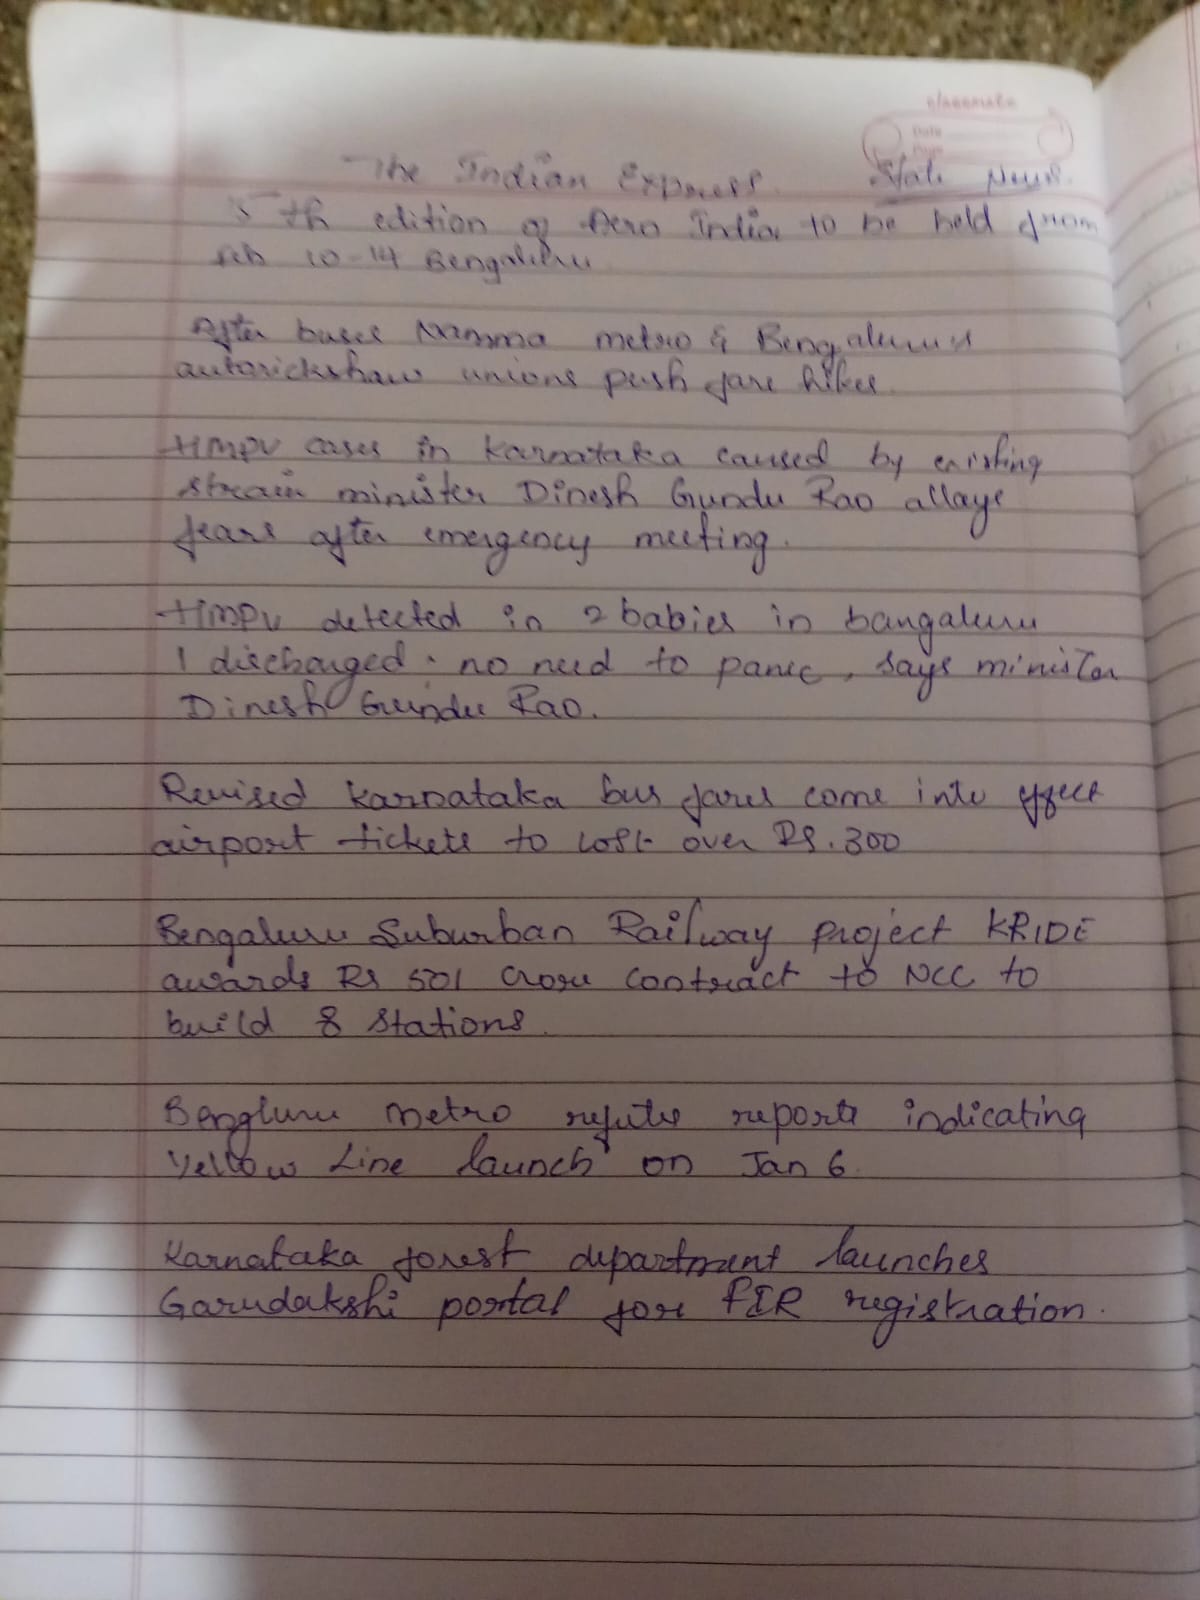 classmate
Date
Page
The Indian Express. State News.
5th edition of Aero India to be held from
Feb 10-14 Bengaluru
After buses Namma metro & Bengaluru's
autorickshaw unions push fare hikes.
HMPV cases in Karnataka caused by existing
strain minister Dinesh Gundu Rao allays
fears after emergency meeting.
HMPV detected in 2 babies in bangaluru
1 discharged. no need to panic, says minister
Dinesh Gundu Rao.
Revised Karnataka bus fares come into effect
airport tickets to cost over Rs. 300
Bengaluru Suburban Railway project KRIDE
awards Rs 501 crore contract to NCC to
build 8 stations.
Bengluru metro refutes reports indicating
Yellow Line launch on Jan 6.
Karnataka forest department launches
Garudakshi portal for FIR registration.